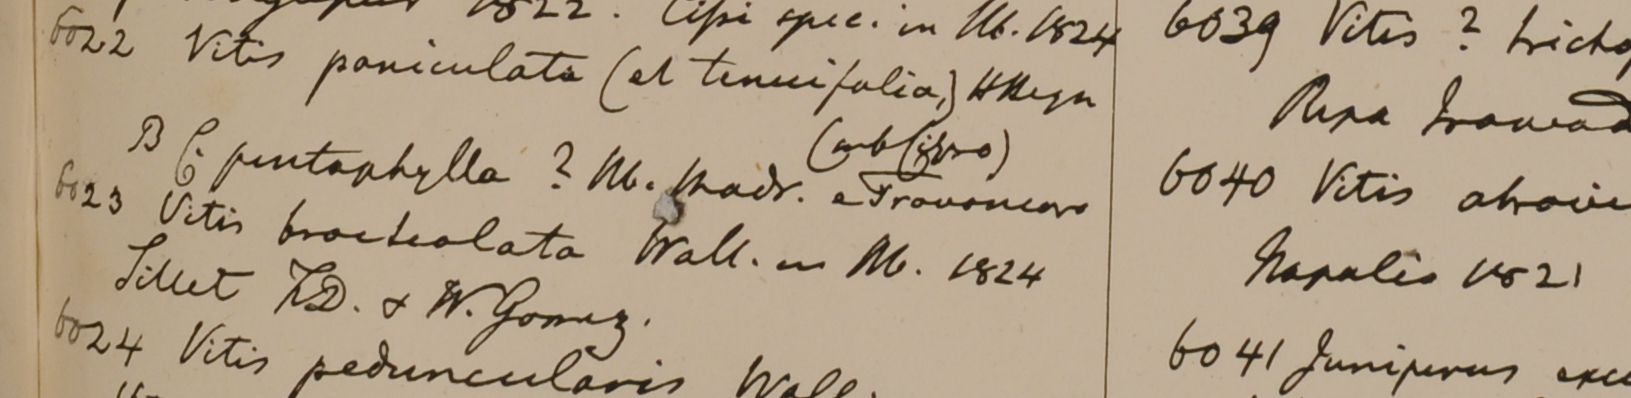 1822. Cissi spec. in Hb. 1824
6022 Vitis paniculata (et tenuifolia,) HHeyn
(sub Cisso)
B C. pentaphylla ? Hb. Madr. e Travancore
6023 Vitis bracteolata Wall. in Hb. 1824
Sillet F.D. & W. Gomez.
6024 Vitis peduncularis Wall.
6039 Vitis ? tricho
Ripa Irawad
6040 Vitis
Napalia 1821
6041 Juniperus exce